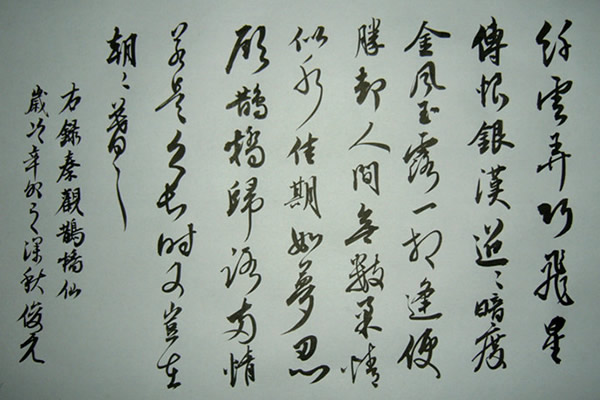 纤雲弄巧飛星
傳恨銀漢迢々暗度
金風玉露一相逢便
勝却人間無數柔情
似水佳期如夢忍
顧鵲橋歸路兩情
若是久長時又豈在
朝々暮々
右錄秦觀鵲橋仙
歲次辛卯之深秋俊元